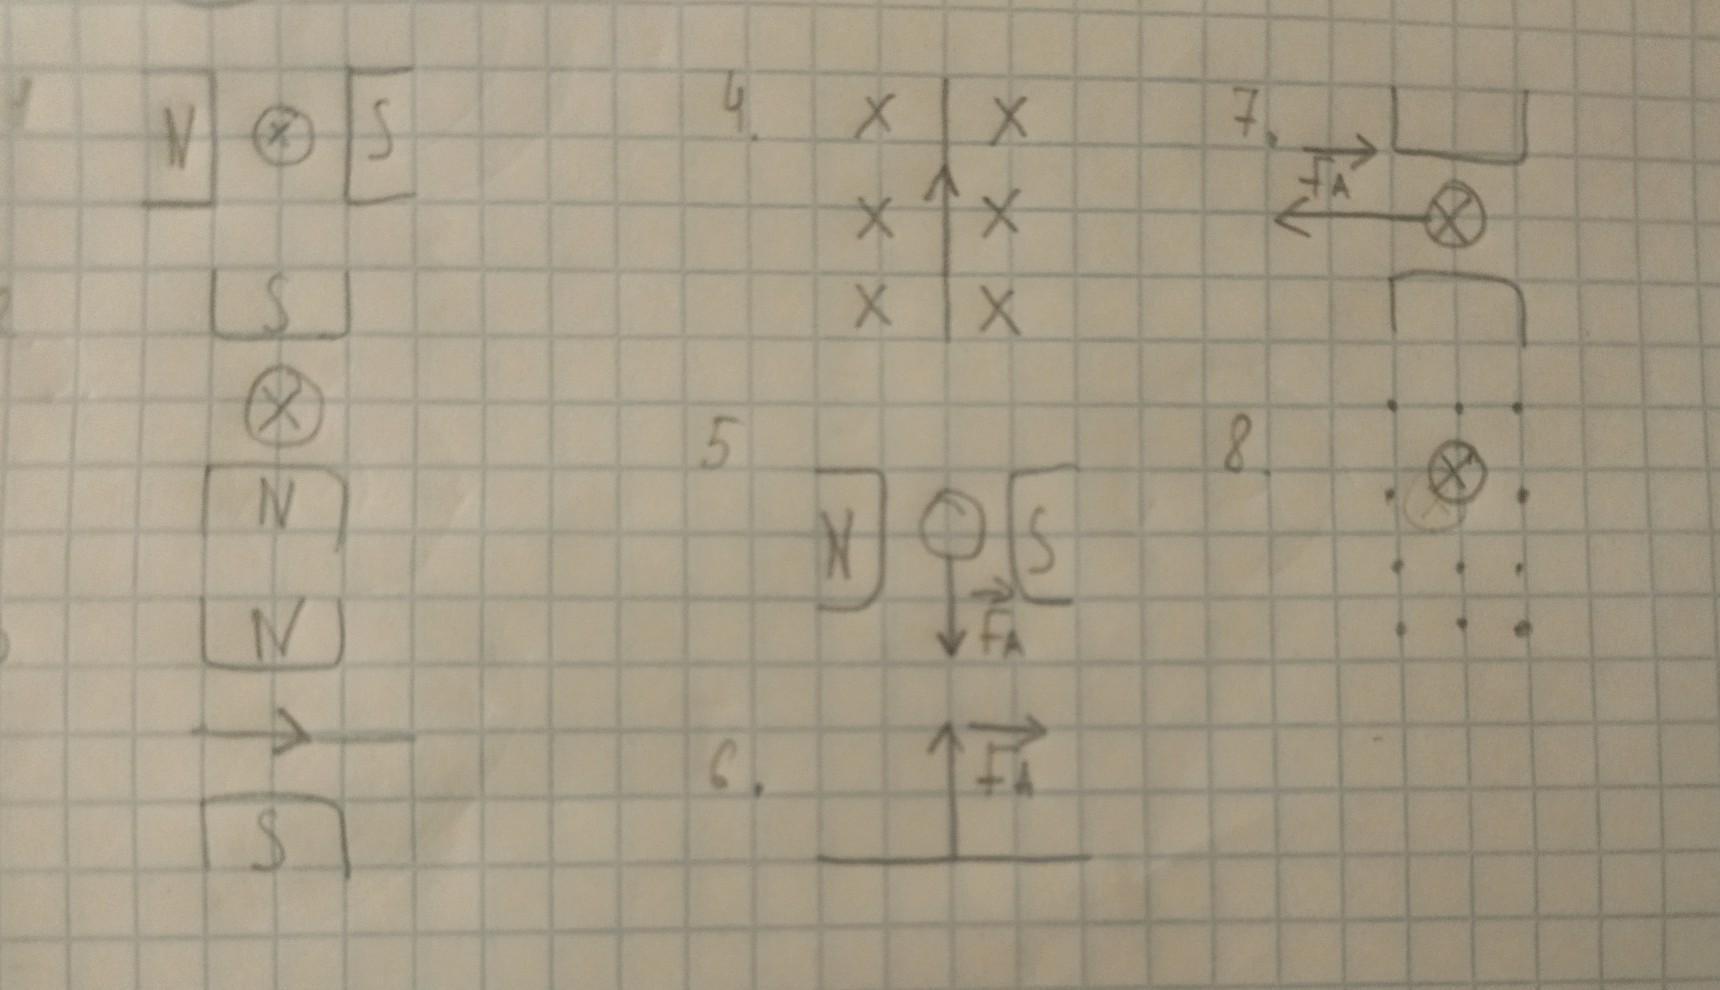 N S
S
N
N
S
4.
5
N S
F_A
6.
F_A
7.
F_A
8.